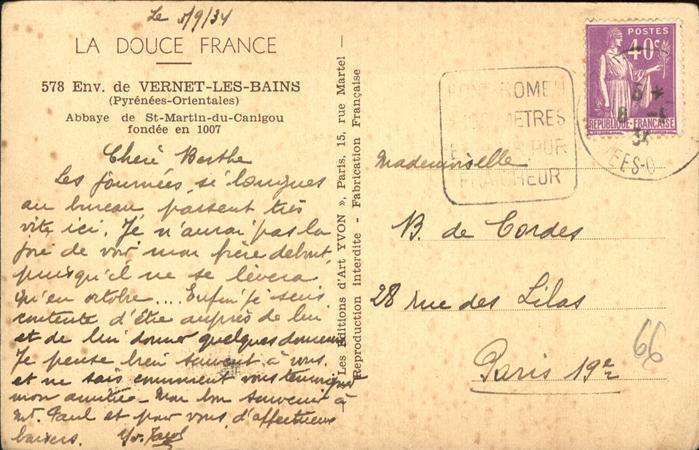 Le 5/9/34
LA DOUCE FRANCE
578 Env. de VERNET-LES-BAINS
(Pyrénées-Orientales)
Abbaye de St-Martin-du-Canigou
fondée en 1007
Chère Berthe
Les journées si longues
au bureau passent très
vite ici. Je n'aurai pas la
joie de voir mon frère debout,
puisqu'il ne se lèvera
qu'en octobre.... Enfin je suis
contente d'être auprès de lui
et de lui donner quelques douceurs
Je pense bien souvent à vous
et ne sais comment vous témoigner
mon amitié - Mon bon souvenir à
Mr. Paul et pour vous d'affectueux
baisers.
Les Editions d'Art YVON », Paris, 15, rue Martel -
Reproduction Interdite - Fabrication Française
POSTES
40c
REPUBLIQUE-FRANÇAISE
METRES
PUR
FRAICHEUR
Mademoiselle
B. de Cordes
28 rue des Lilas
Paris 19e
66